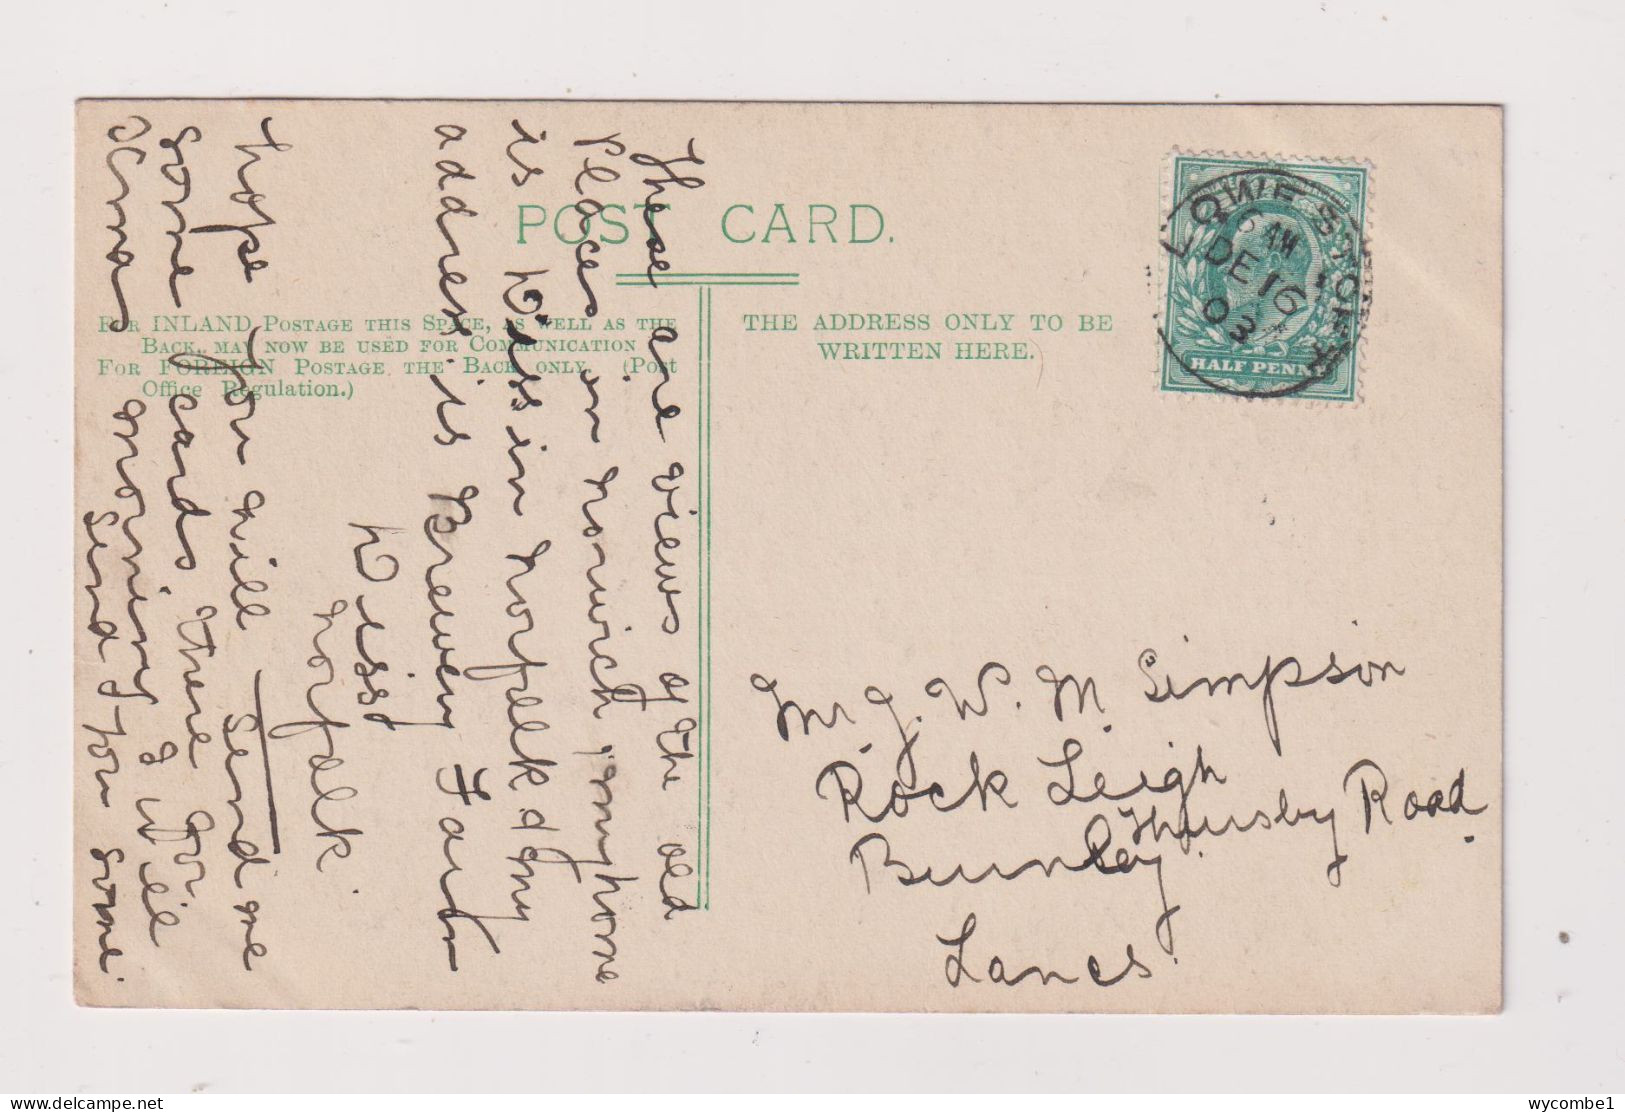 POST CARD.
FOR INLAND POSTAGE THIS SPACE, AS WELL AS THE
BACK, MAY NOW BE USED FOR COMMUNICATION
FOR FOREIGN POSTAGE THE BACK ONLY. (POST
Office Regulation.)
THE ADDRESS ONLY TO BE
WRITTEN HERE.
LOWESTOFT
6 AM
DE 16
03
HALF PENNY
These are views of the old
Places in Norwich, my home
is Diss in Norfolk & my
address is Brewery Farm
Diss
Norfolk.
hope you will send me
some cards there for
Xmas morning I will
send you some.
Mr J. W. M. Simpson
Rock Leigh
Thursby Road
Burnley.
Lancs.
wycombe1